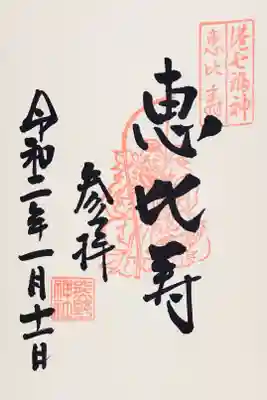 港七福神
恵比寿
恵比寿
参拝
令和二年一月十一日
熊野
神社